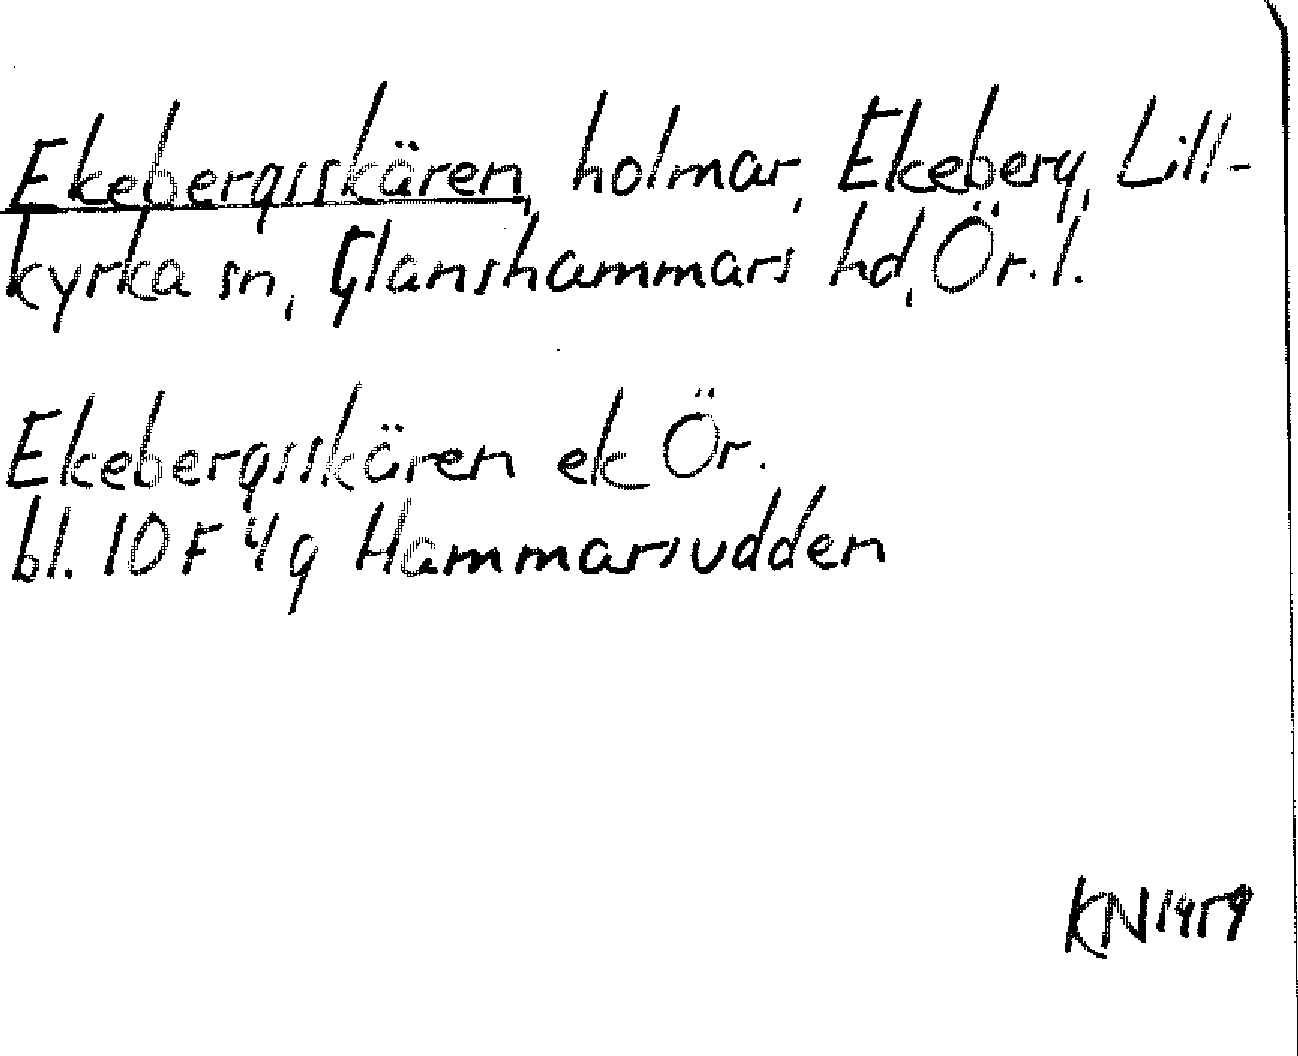 Ekebergsskären, holmar, Ekeberg, Lill-
kyrka sn, Glanshammars hd, Ör. l.
Ekebergsskären ek Ör.
bl. 10F 4g Hammarsudden
KN 1959